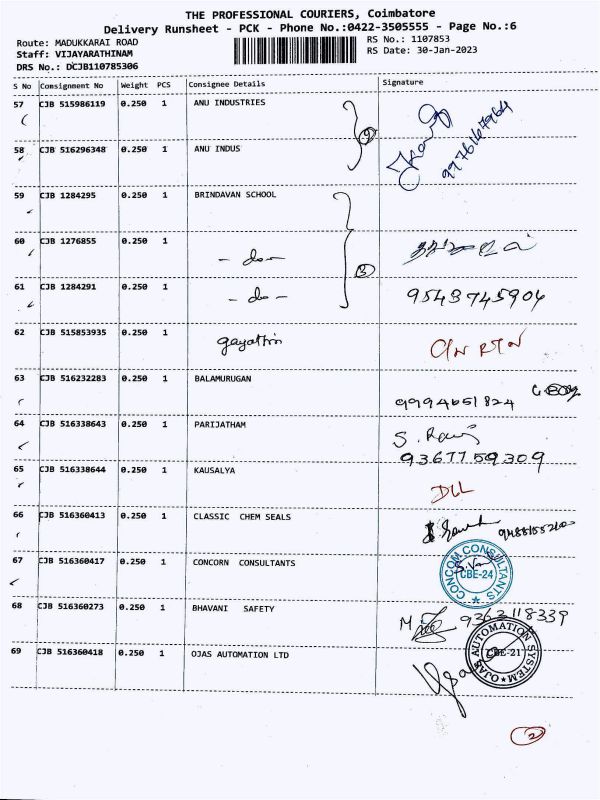 THE PROFESSIONAL COURIERS, Coimbatore
Delivery Runsheet - PCK - Phone No.:0422-3505555 - Page No.:6
Route: MADUKKARAI ROAD RS No.: 1107853
Staff: VIJAYARATHINAM RS Date: 30-Jan-2023
DRS No.: DCJB110785306
S No Consignment No Weight PCS Consignee Details Signature
57 CJB 515986119 0.250 1 ANU INDUSTRIES
58 CJB 516296348 0.250 1 ANU INDUS
59 CJB 1284295 0.250 1 BRINDAVAN SCHOOL
60 CJB 1276855 0.250 1 - do -
61 CJB 1284291 0.250 1 - do - 9543745904
62 CJB 515853935 0.250 1 gayathri
63 CJB 516232283 0.250 1 BALAMURUGAN 9994651824
64 CJB 516338643 0.250 1 PARIJATHAM S. Ravi
9367759309
65 CJB 516338644 0.250 1 KAUSALYA DLL
66 CJB 516360413 0.250 1 CLASSIC CHEM SEALS
67 CJB 516360417 0.250 1 CONCORN CONSULTANTS CONCOM CONSULTANTS CBE-24
68 CJB 516360273 0.250 1 BHAVANI SAFETY 9362118339
69 CJB 516360418 0.250 1 OJAS AUTOMATION LTD OJAS AUTOMATION SYSTEM CBE-21
2